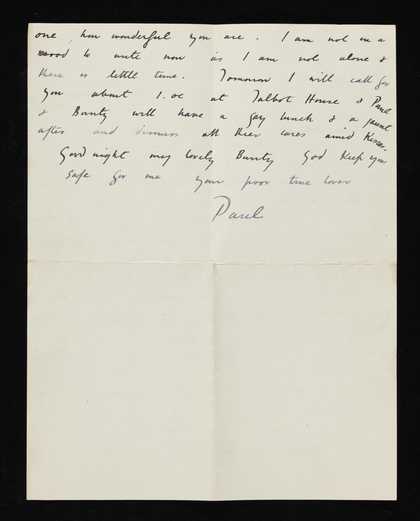 one, how wonderful you are. I am not in a
mood to write now as I am not alone &
there is little time. Tomorrow I will call for
you about 1.oc at Talbot House & Paul
& Bunty will have a gay lunch & a jaunt
after and dismiss all their cares amid Kisses.
Good night my lovely Bunty God Keep you
safe for me your poor true lover
Paul